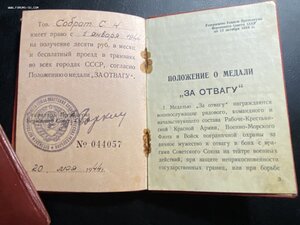 Тов. Соброт С. К
имеет право с 1 января 1944
на получение десяти руб. в месяц
и бесплатный проезд в трамвае
во всех городах СССР, согласно
Положению о медали „ЗА ОТВАГУ"
№ 044057
20 мая 1944 г.
Утверждено Указом Президиума
Верховного Совета СССР
от 17 октября 1938 г.
ПОЛОЖЕНИЕ О МЕДАЛИ
"ЗА ОТВАГУ"
1. Медалью „За отвагу" награждаются
военнослужащие рядового, командного и
начальствующего состава Рабоче-Крестьян-
ской Красной Армии, Военно-Морского
Флота и Войск пограничной охраны за лич-
ное мужество и отвагу в боях с врага-
ми Советского Союза на театре военных
действий, при защите неприкосновенности
государственных границ, или при борьбе
3